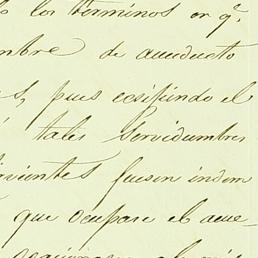 los terminos en q.e
mbre de acueducto
pues ecsijiendo el
tales servidumbres
rvientes fuesen indem
que ocupase el acue-